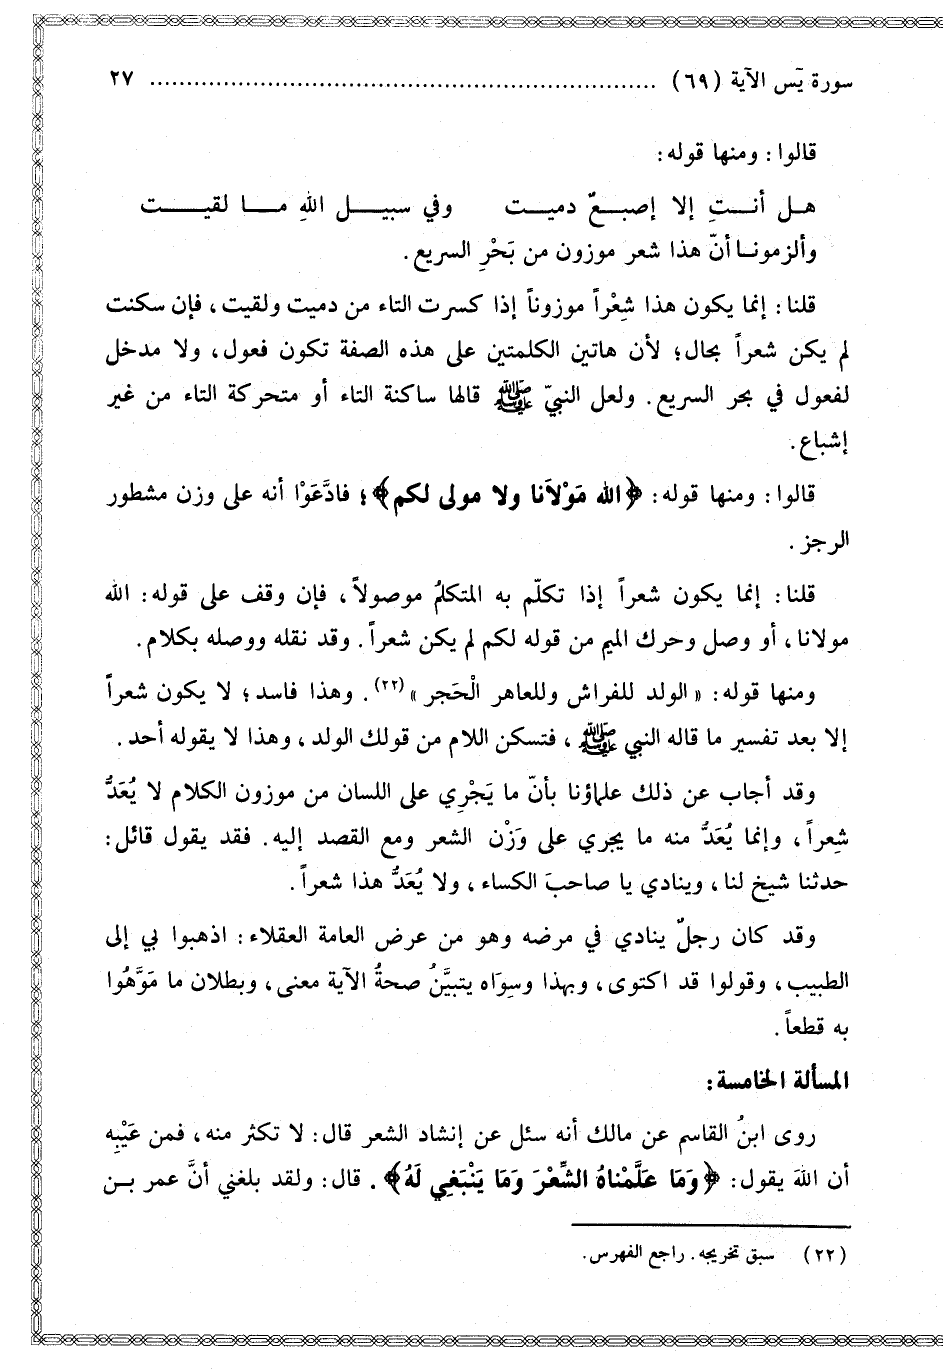 سورة يۤس الآية (٦٩) ........................................................................ ٢٧
قالوا: ومنها قوله:
هـل أنـتِ إلا إصبـعٌ دميـت وفي سبيـل اللهِ مـا لقيـت
وألزمونـا أنّ هذا شعر موزون من بَحْرِ السريع.
قلنا: إنما يكون هذا شِعْراً موزوناً إذا كسرت التاء من دميت ولقيت، فإن سكنت
لم يكن شعراً بحال؛ لأن هاتين الكلمتين على هذه الصفة تكون فعول، ولا مدخل
لفعول في بحر السريع. ولعل النبيّ ﷺ قالها ساكنة التاء أو متحركة التاء من غير
إشباع.
قالوا: ومنها قوله: ﴿الله مَوْلاَنا ولا مولى لكم﴾؛ فادَّعَوْا أنه على وزن مشطور
الرجز.
قلنا: إنما يكون شعراً إذا تكلّم به المتكلمُ موصولاً، فإن وقف على قوله: الله
مولانا، أو وصل وحرك الميم من قوله لكم لم يكن شعراً. وقد نقله ووصله بكلام.
ومنها قوله: «الولد للفراش وللعاهر الْحَجر»(٢٢). وهذا فاسد؛ لا يكون شعراً
إلا بعد تفسير ما قاله النبي ﷺ، فتسكن اللام من قولك الولد، وهذا لا يقوله أحد.
وقد أجاب عن ذلك علماؤنا بأنّ ما يَجْرِي على اللسان من موزون الكلام لا يُعَدُّ
شِعراً، وإنما يُعَدُّ منه ما يجري على وَزْن الشعر ومع القصد إليه. فقد يقول قائل:
حدثنا شيخ لنا، وينادي يا صاحبَ الكساء، ولا يُعَدُّ هذا شعراً.
وقد كان رجلٌ ينادي في مرضه وهو من عرض العامة العقلاء: اذهبوا بي إلى
الطبيب، وقولوا قد اكتوى، وبهذا وسِوَاه يتبيَّنُ صحةُ الآية معنى، وبطلان ما مَوَّهُوا
به قطعاً.
المسألة الخامسة:
روى ابنُ القاسم عن مالك أنه سئل عن إنشاد الشعر قال: لا تكثر منه، فمن عَيْبِه
أن اللهَ يقول: ﴿وَمَا عَلَّمْناهُ الشِّعْرَ وَمَا يَنْبَغِي لَهُ﴾. قال: ولقد بلغني أنَّ عمر بـن
(٢٢) سبق تخريجه. راجع الفهرس.